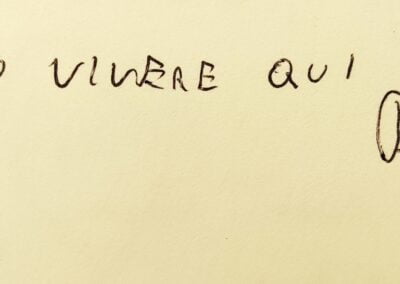 VIVERE QUI